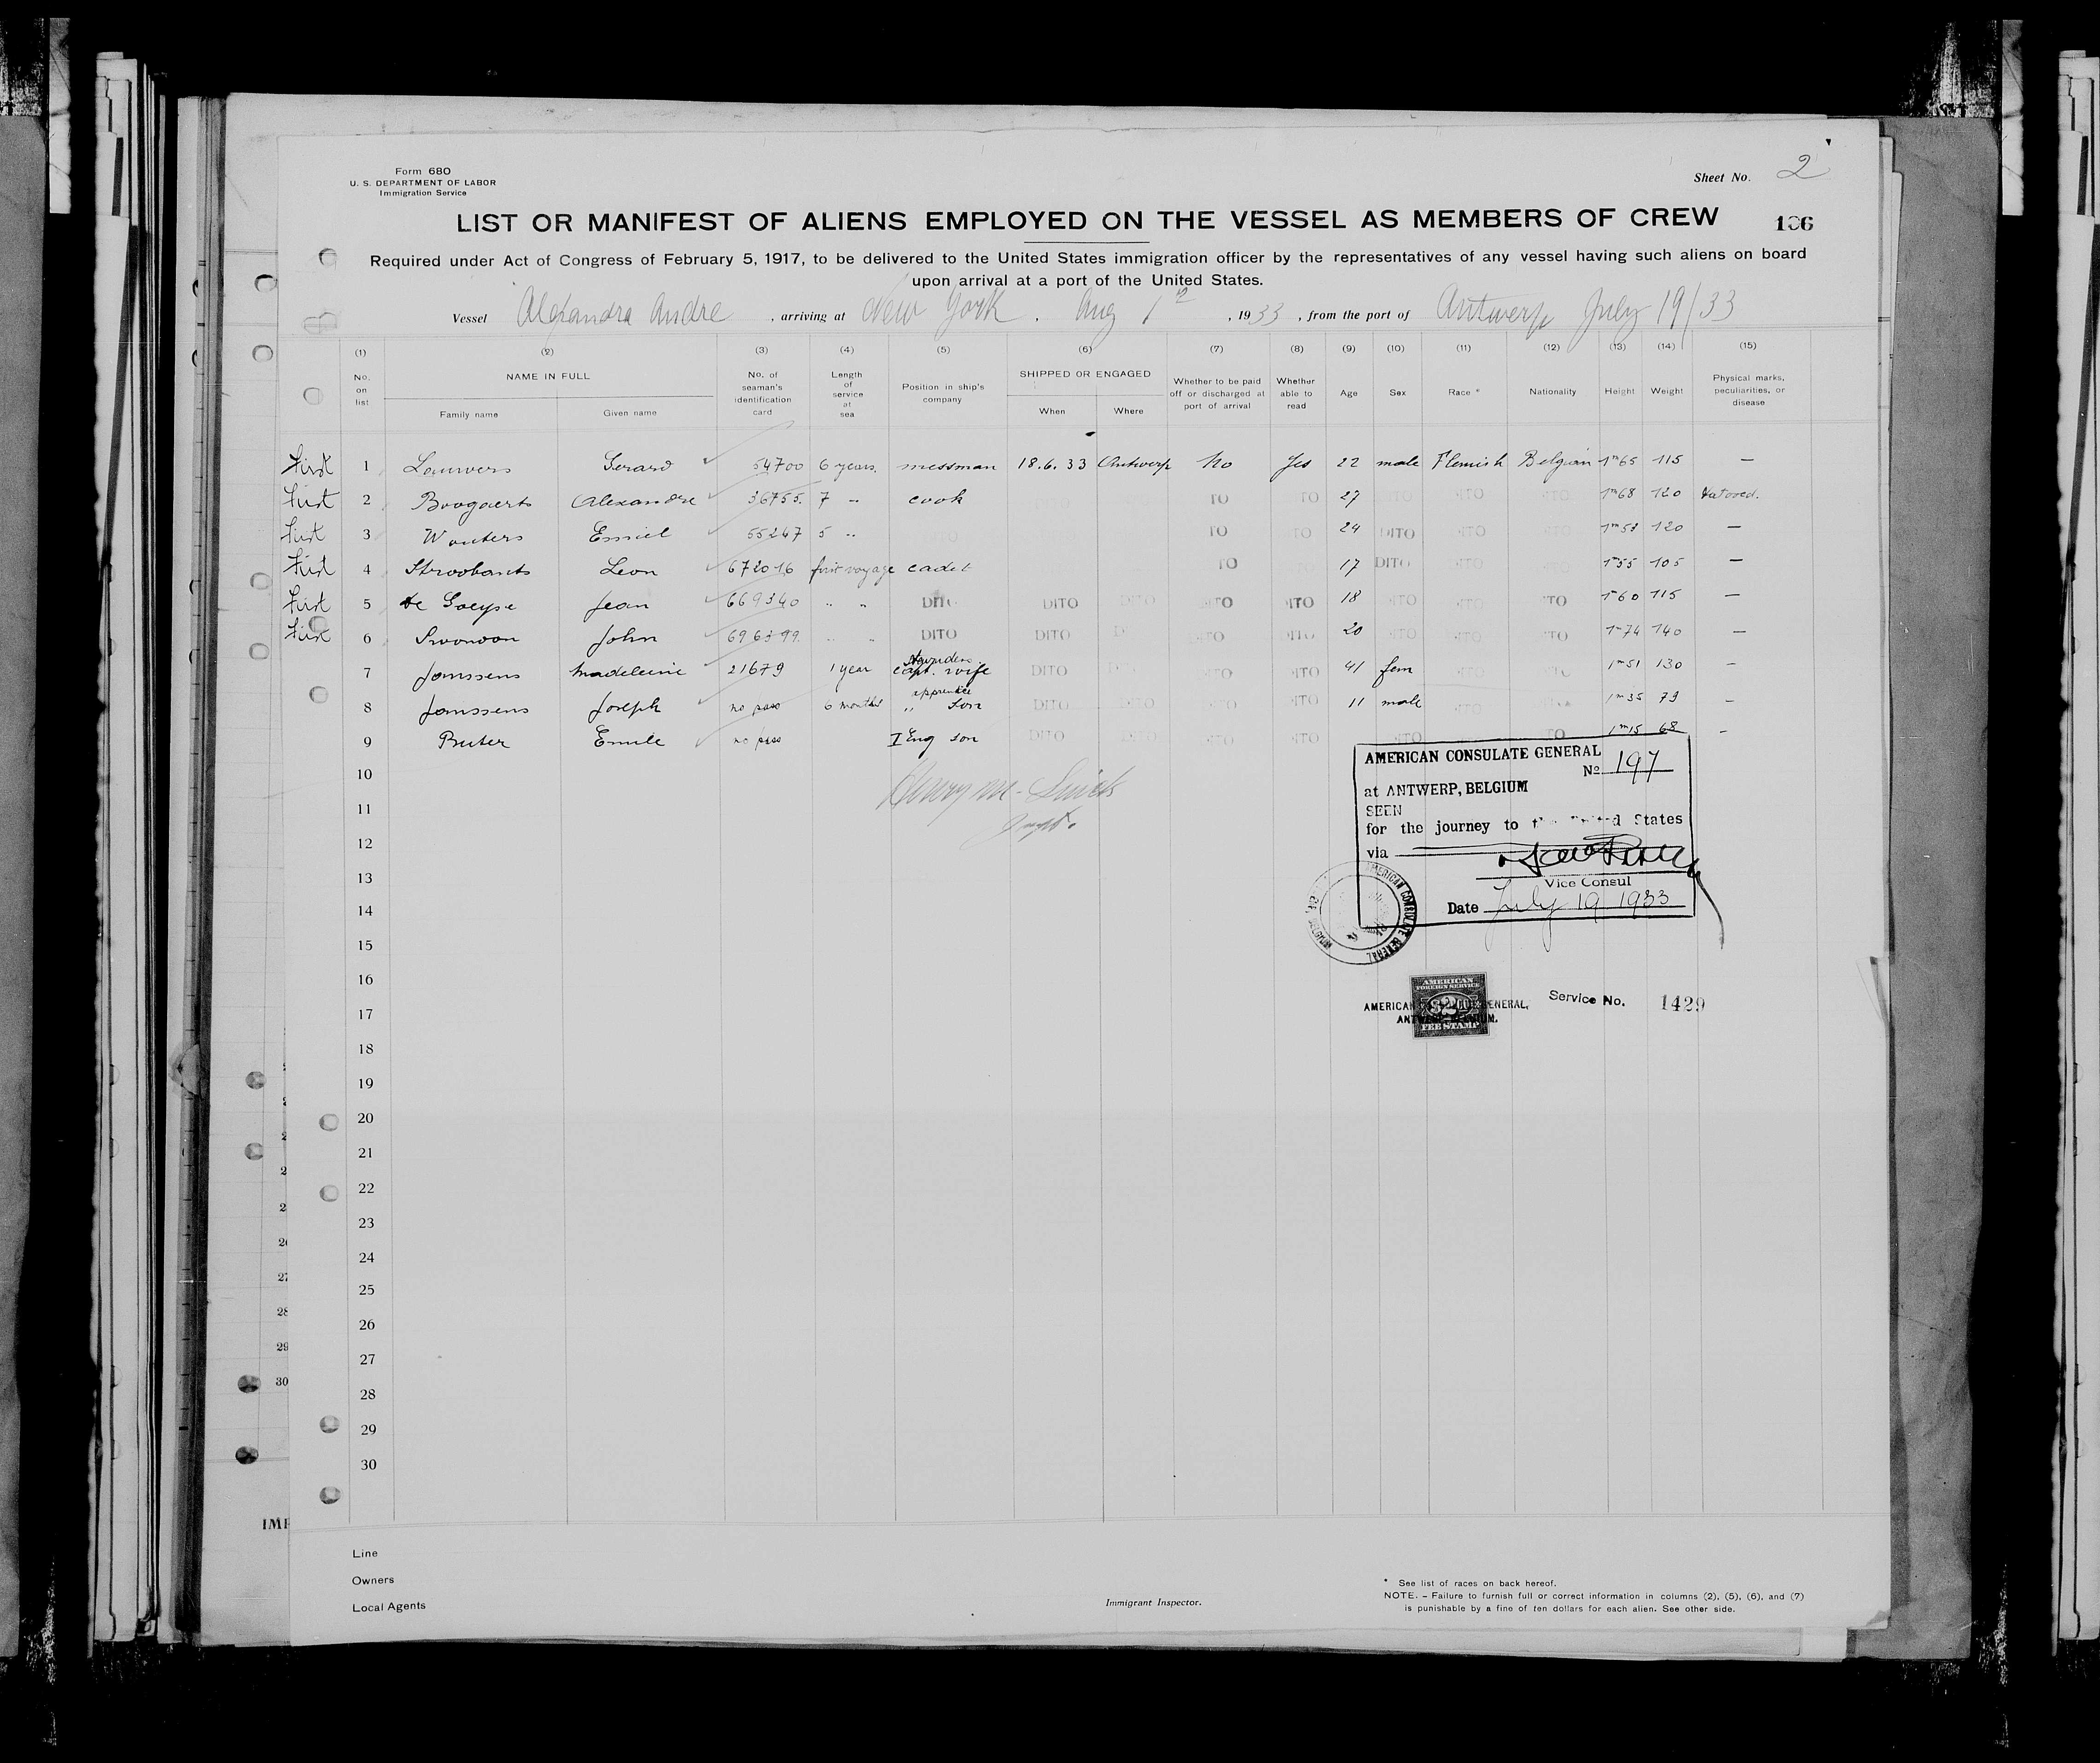 Form 680
U. S. DEPARTMENT OF LABOR
Immigration Service
Sheet No. 2
LIST OR MANIFEST OF ALIENS EMPLOYED ON THE VESSEL AS MEMBERS OF CREW
Required under Act of Congress of February 5, 1917, to be delivered to the United States immigration officer by the representatives of any vessel having such aliens on board
upon arrival at a port of the United States.
Vessel Alexandra Andre, arriving at New York, Aug 1, 1933, from the port of Antwerp July 19/33
(1) (2) (3) (4) (5) (6) (7) (8) (9) (10) (11) (12) (13) (14) (15)
No. on list NAME IN FULL Family name Given name No. of seaman's identification card Length of service at sea Position in ship's company SHIPPED OR ENGAGED When Where Whether to be paid off or discharged at port of arrival Whether able to read Age Sex Race * Nationality Height Weight Physical marks, peculiarities, or disease
first 1 Lauwers Gerard 54700 6 years. messman 18.6.33 Antwerp No Yes 22 male Flemish Belgian 1m65 115 —
first 2 Boogaerts Alexandre 36755. 7 " cook TO TO 27 DITO DITO 1m68 120 tatooed.
first 3 Wouters Emiel 55247 5 " TO TO 24 DITO DITO 1m58 120 —
first 4 Stroobants Leon 672016 first voyage cadet TO 17 DITO DITO 1m55 105 —
first 5 de Goeyse Jean 669340 " " DITO DITO DITO DITO DITO 18 DITO DITO DITO 1m60 115 —
first 6 John 696399. " " DITO DITO D DITO DITO 20 DITO DITO DITO 1m74 140 —
7 Janssens Madeleine 21679 1 year Stewardess capt. wife DITO DITO DITO DITO 41 fem DITO DITO 1m51 130 –
8 Janssens Joseph no pass 6 months apprentice " son DITO DITO DITO DITO 11 male DITO DITO 1m35 79 –
9 Emile no pass I Eng son DITO DITO DITO DITO DITO TO 1m15 68 –
10
11
12
13
14
15
16
17
18
19
20
21
22
23
24
25
26
27
28
29
30
AMERICAN CONSULATE GENERAL
No 197
at ANTWERP, BELGIUM
SEEN
for the journey to the United States
via
Vice Consul
Date July 19 1933
AMERICAN CONSULATE GENERAL
BELGIUM
AMERICAN
FOREIGN SERVICE
$2
FEE STAMP
AMERICAN CONSULATE GENERAL,
ANTWERP BELGIUM.
Service No. 1429
26
27
28
29
30
Line
Owners
Local Agents
Immigrant Inspector.
* See list of races on back hereof.
NOTE. – Failure to furnish full or correct information in columns (2), (5), (6), and (7)
is punishable by a fine of ten dollars for each alien. See other side.